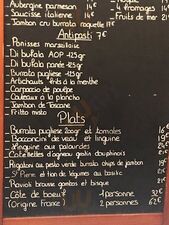 Aubergine parmesan 14€
Saucisse italienne 14€
Jambon cru burrata roquette 17€
4 fromages 14€
Fruits de mer
Antipasti 7€
- Panisses marseillaise
- Di bufala AOP -125gr
- Di bufala panée -125gr
- Burrata pugliese -125gr
- Artichauts frits à la menthe
- Carpaccio de poulpe
- Couteaux à la plancha
- Jambon de Toscane
- Fritto misto
Plats
- Burrata pugliese 200gr et tomates 16€
- Bocconcini de veau et linguine 19€
- Linguine aux palourdes
- Côtelettes d'agneau gratin dauphinois
- Rigatoni au pesto verde burrata chips de jambon 19€
- St Pierre et flan de légumes au basilic
- Ravioli brousse gambas et bisque
- Côte de boeuf 1 personne 32€
(Origine France) 2 personnes 62€